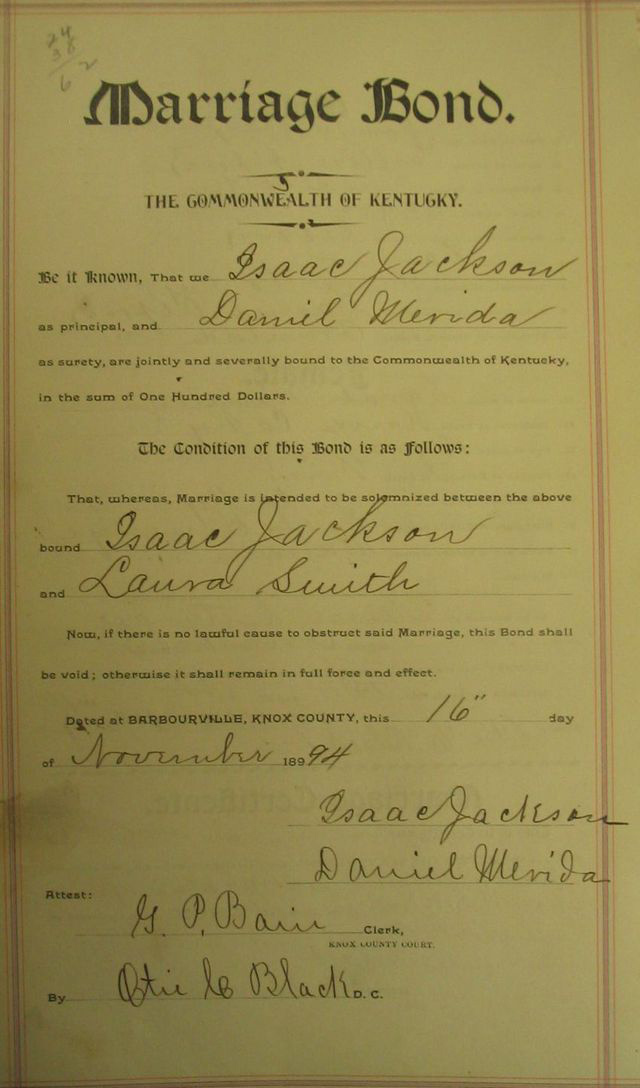 24
38
62
Marriage Bond.
THE COMMONWEALTH OF KENTUCKY.
Be it Known, That we Isaac Jackson
as principal, and Daniel Merida
as surety, are jointly and severally bound to the Commonwealth of Kentucky,
in the sum of One Hundred Dollars.
The Condition of this Bond is as Follows:
That, whereas, Marriage is intended to be solemnized between the above
bound Isaac Jackson
and Laura Smith
Now, if there is no lawful cause to obstruct said Marriage, this Bond shall
be void; otherwise it shall remain in full force and effect.
Dated at BARBOURVILLE, KNOX COUNTY, this 16" day
of November 189 94
Isaac Jackson
Daniel Merida
Attest:
G. P. Bain Clerk,
KNOX COUNTY COURT.
By Black D. C.